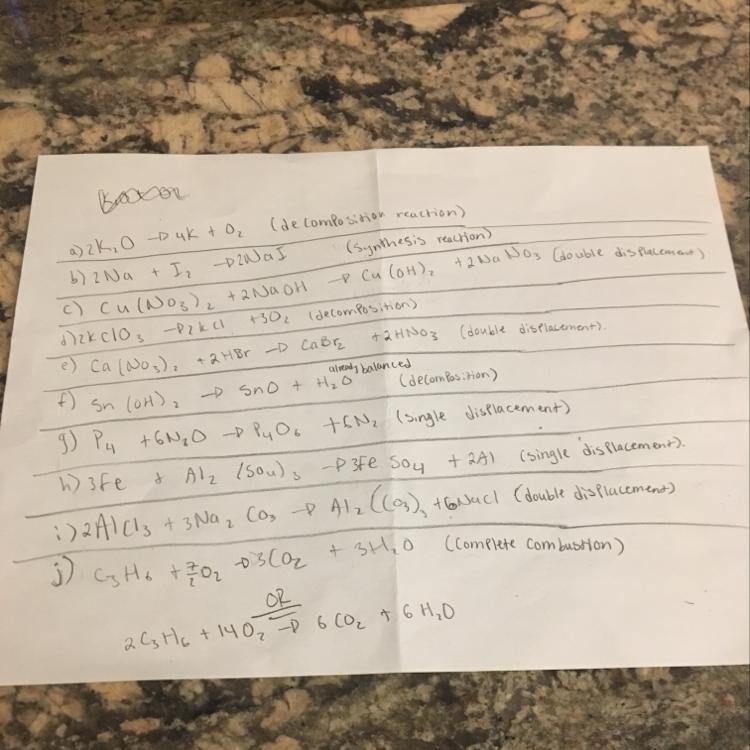 a) 2K₂O → 4K + O₂ (decomposition reaction)
b) 2Na + I₂ → 2NaI (synthesis reaction)
c) Cu(NO₃)₂ + 2NaOH → Cu(OH)₂ + 2NaNO₃ (double displacement)
d) 2KClO₃ → 2KCl + 3O₂ (decomposition)
e) Ca(NO₃)₂ + 2HBr → CaBr₂ + 2HNO₃ (double displacement).
already balanced
f) Sn(OH)₂ → SnO + H₂O (decomposition)
g) P₄ + 6N₂O → P₄O₆ + 6N₂ (single displacement)
h) 3Fe + Al₂(SO₄)₃ → 3FeSO₄ + 2Al (single displacement).
i) 2AlCl₃ + 3Na₂CO₃ → Al₂(CO₃)₃ + 6NaCl (double displacement)
j) C₃H₆ + 7/2O₂ → 3CO₂ + 3H₂O (complete combustion)
OR
2C₃H₆ + 14O₂ → 6CO₂ + 6H₂O